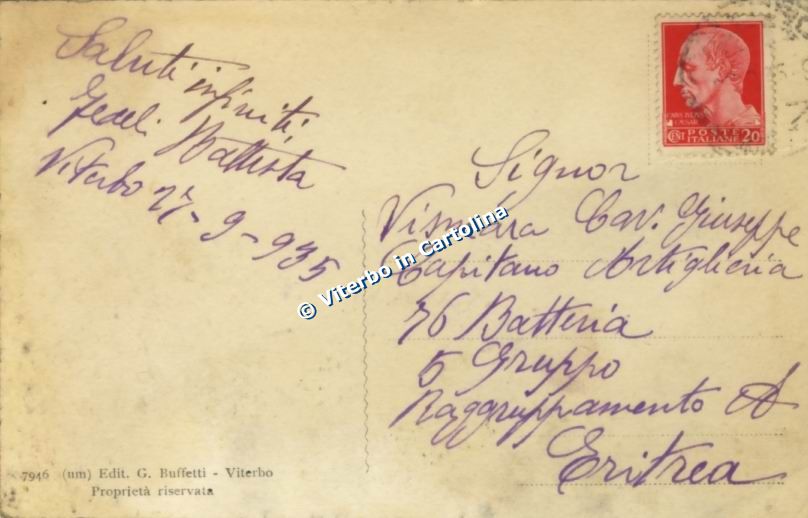 Saluti infiniti
Fedeli Battista
Viterbo 27-9-935
CAIVS IVLIVS
CAESAR
CENT POSTE
ITALIANE 20
Signor
Vismara Cav. Giuseppe
Capitano Artiglieria
76 Batteria
5 Gruppo
Raggruppamento A
Eritrea
© Viterbo in Cartolina
7946 (um) Edit. G. Buffetti - Viterbo
Proprietà riservata